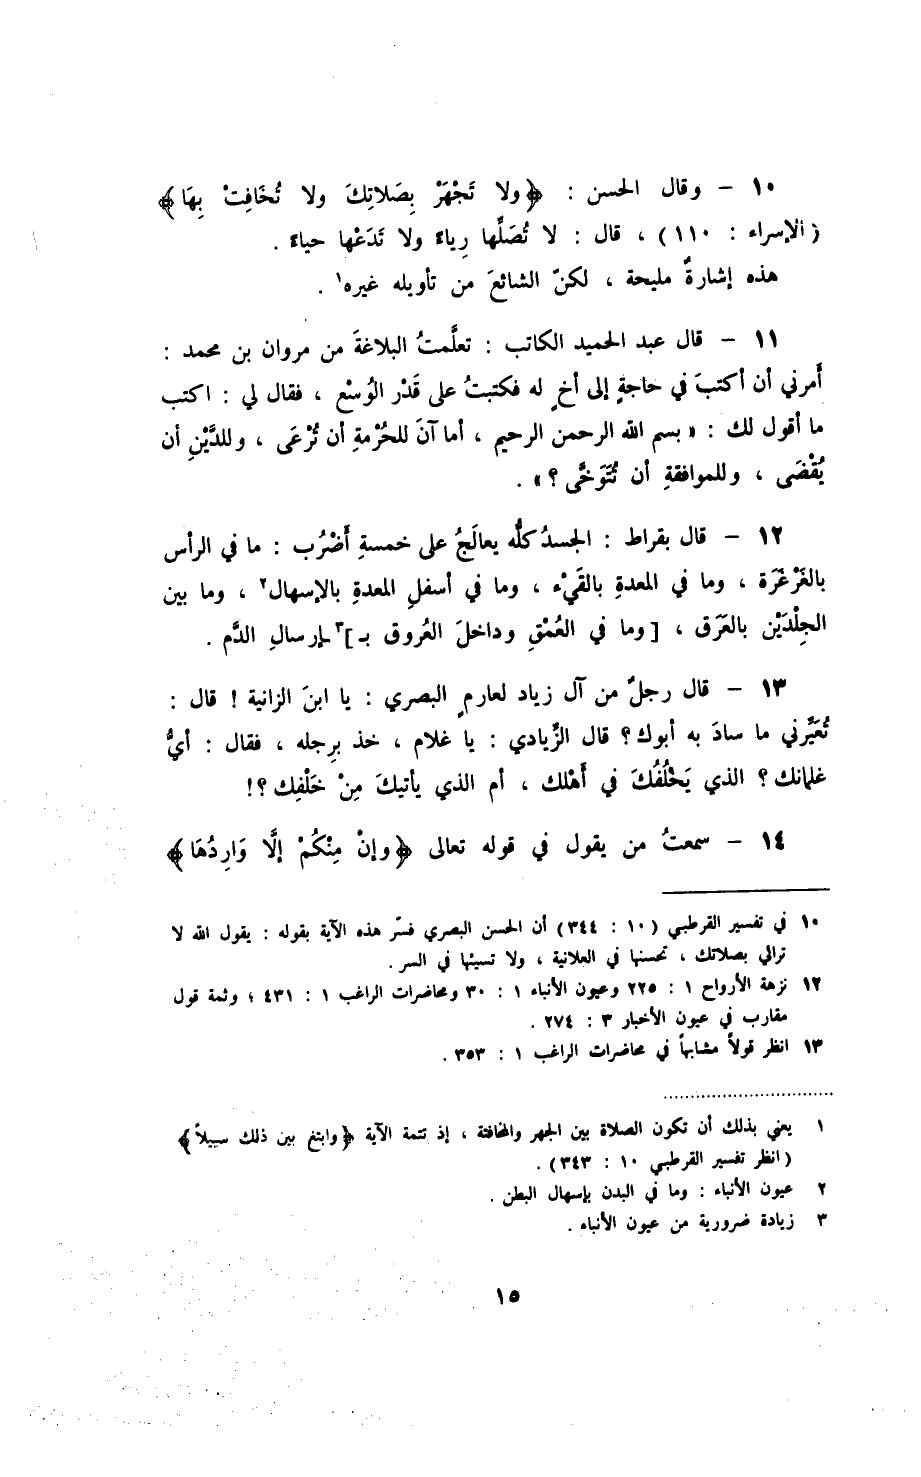 ١٠ – وقال الحسن : ﴿ولا تَجْهَرْ بِصَلاتِكَ ولا تُخَافِتْ بِهَا﴾
( الإسراء : ١١٠ ) ، قال : لا تُصَلِّها رِياءً ولا تَدَعْها حياءً .
هذه إشارةٌ مليحة ، لكنّ الشائعَ من تأويله غيره١ .
١١ – قال عبد الحميد الكاتب : تعلَّمتُ البلاغةَ من مروان بن محمد :
أَمرني أن أكتبَ في حاجةٍ إلى أخٍ له فكتبتُ على قَدْر الوُسْع ، فقال لي : اكتب
ما أقول لك : « بسم الله الرحمن الرحيم ، أما آنَ للحُرْمةِ أن تُرْعَى ، وللدَّيْنِ أن
يُقْضَى ، وللموافقةِ أن تُتَوَخَّى ؟ » .
١٢ – قال بقراط : الجسدُ كلُّه يعالَجُ على خمسةِ أَضْرُب : ما في الرأس
بالغَرْغَرَة ، وما في المعدةِ بالقَيْء ، وما في أسفلِ المعدةِ بالإسهال٢ ، وما بين
الجِلْدَيْن بالعَرَق ، [ وما في العُمْقِ وداخلَ العُروق بـ ]٣ ـإرسالِ الدَّم .
١٣ – قال رجلٌ من آل زياد لعارمٍ البصري : يا ابنَ الزانية ! قال :
تُعَيِّرني ما سادَ به أبوك ؟ قال الزِّيادي : يا غلام ، خذ بِرجله ، فقال : أيُّ
غلمانك ؟ الذي يَخْلُفُكَ في أَهْلك ، أم الذي يأتيكَ مِنْ خَلْفِك ؟!
١٤ – سمعتُ من يقول في قوله تعالى ﴿وإنْ مِنْكُمْ إلَّا وَارِدُهَا﴾
١٠ في تفسير القرطبي (١٠ : ٣٤٤) أن الحسن البصري فسّر هذه الآية بقوله : يقول الله لا
ترائي بصلاتك ، تحسنها في العلانية ، ولا تسيئها في السر .
١٢ نزهة الأرواح ١ : ٢٢٥ وعيون الأنباء ١ : ٣٠ ومحاضرات الراغب ١ : ٤٣١ ؛ وثمة قول
مقارب في عيون الأخبار ٣ : ٢٧٤ .
١٣ انظر قولاً مشابهاً في محاضرات الراغب ١ : ٣٥٣ .
١ يعني بذلك أن تكون الصلاة بين الجهر والمخافتة ، إذ تتمة الآية ﴿وابتغ بين ذلك سبيلاً﴾
( انظر تفسير القرطبي ١٠ : ٣٤٣) .
٢ عيون الأنباء : وما في البدن بإسهال البطن .
٣ زيادة ضرورية من عيون الأنباء .
١٥